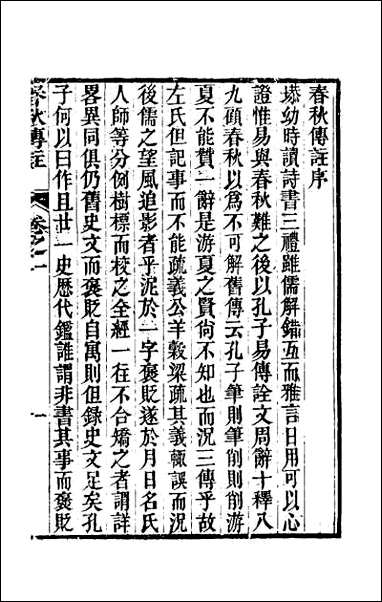 春秋傳註序
塨幼時讀詩書三禮雖儒解錯互而雅言日用可以心
證惟易與春秋難之後以孔子易傳詮文周辭十釋八
九顧春秋以爲不可解舊傳云孔子筆則筆削則削游
夏不能贊一辭是游夏之賢尙不知也而況三傳乎故
左氏但記事而不能疏義公羊穀梁疏其義輒誤而況
後儒之望風追影者乎泥於一字褒貶遂於月日名氏
人師等分例樹標而校之全經一在不合矯之者謂詳
畧異同俱仍舊史文而褒貶自寓則但錄史文足矣孔
子何以曰作且世一史歷代鑑誰謂非書其事而褒貶
春秋傳註
卷之一
一